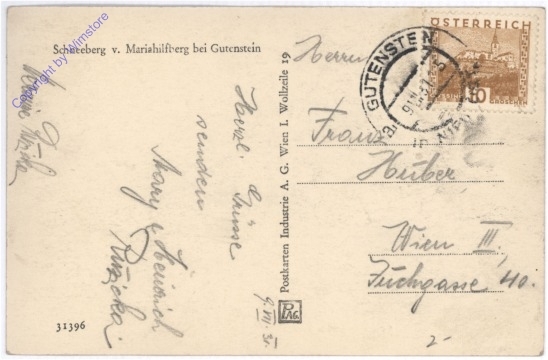 Schneeberg v. Mariahilfberg bei Gutenstein
Copyright by Wimstore
Herzl. Grüsse
senden
Mary & Heinrich
Růžička
9. VII. 31.
31396
Postkarten Industrie A. G. Wien I. Wollzeile 19
PAG
ÖSTERREICH
GROSCHEN
GUTENSTEIN
Herrn
Franz
Huber
Wien III,
Fuchgasse 40.
2-